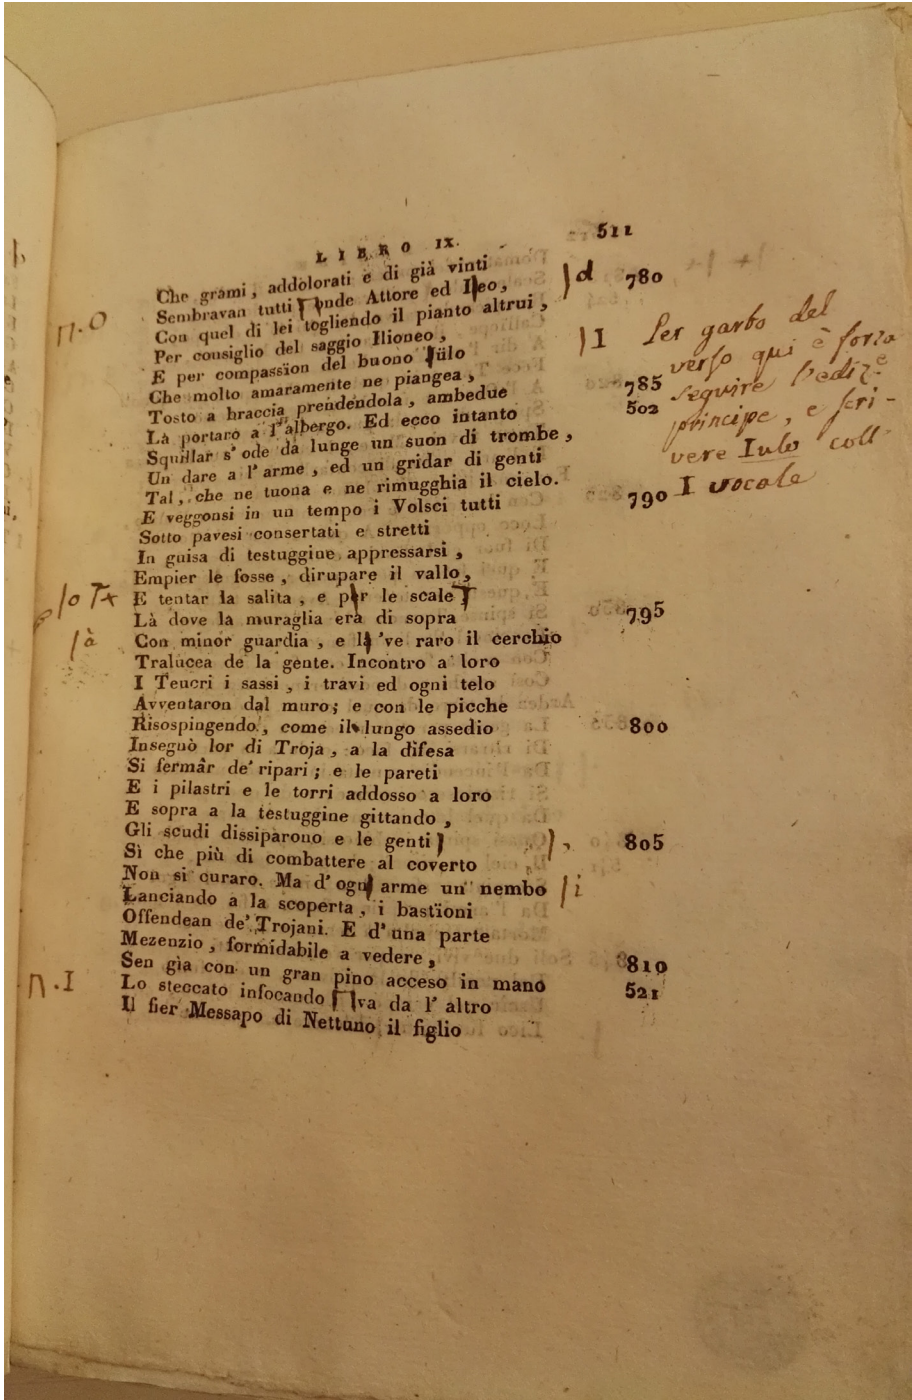 511
LIBRO IX.
Che grami, addolorati e di già vinti
Sembravan tutti onde Attore ed I eo,
Con quel di lei togliendo il pianto altrui,
Per consiglio del saggio Ilioneo,
E per compassion del buono Julo
Che molto amaramente ne piangea,
Tosto a braccia prendendola, ambedue
Là portaro a l'albergo. Ed ecco intanto
Squillar s' ode da lunge un suon di trombe,
Un dare a l' arme, ed un gridar di genti
Tal, che ne tuona e ne rimugghia il cielo.
E veggonsi in un tempo i Volsci tutti
Sotto pavesi consertati e stretti
In guisa di testuggine appressarsi,
Empier le fosse, dirupare il vallo,
E tentar la salita, e per le scale
Là dove la muraglia era di sopra
Con minor guardia, e là 've raro il cerchio
Tralucea de la gente. Incontro a loro
I Teucri i sassi, i travi ed ogni telo
Avventaron dal muro; e con le picche
Risospingendo, come il lungo assedio
Insegnò lor di Troja, a la difesa
Si fermâr de' ripari; e le pareti
E i pilastri e le torri addosso a loro
E sopra a la testuggine gittando,
Gli scudi dissiparono e le genti
Sì che più di combattere al coverto
Non si curaro. Ma d' ogni arme un nembo
Lanciando a la scoperta, i bastïoni
Offendean de' Trojani. E d' una parte
Mezenzio, formidabile a vedere,
Sen gìa con un gran pino acceso in mano
Lo steccato infocando Iva da l' altro
Il fier Messapo di Nettuno il figlio
780
785
502
790
795
800
805
810
521
d
I
Per garbo del
verso qui è forza
seguire l'ediz.e
principe, e scri-
vere Iulo coll'
I vocale
à
,
i